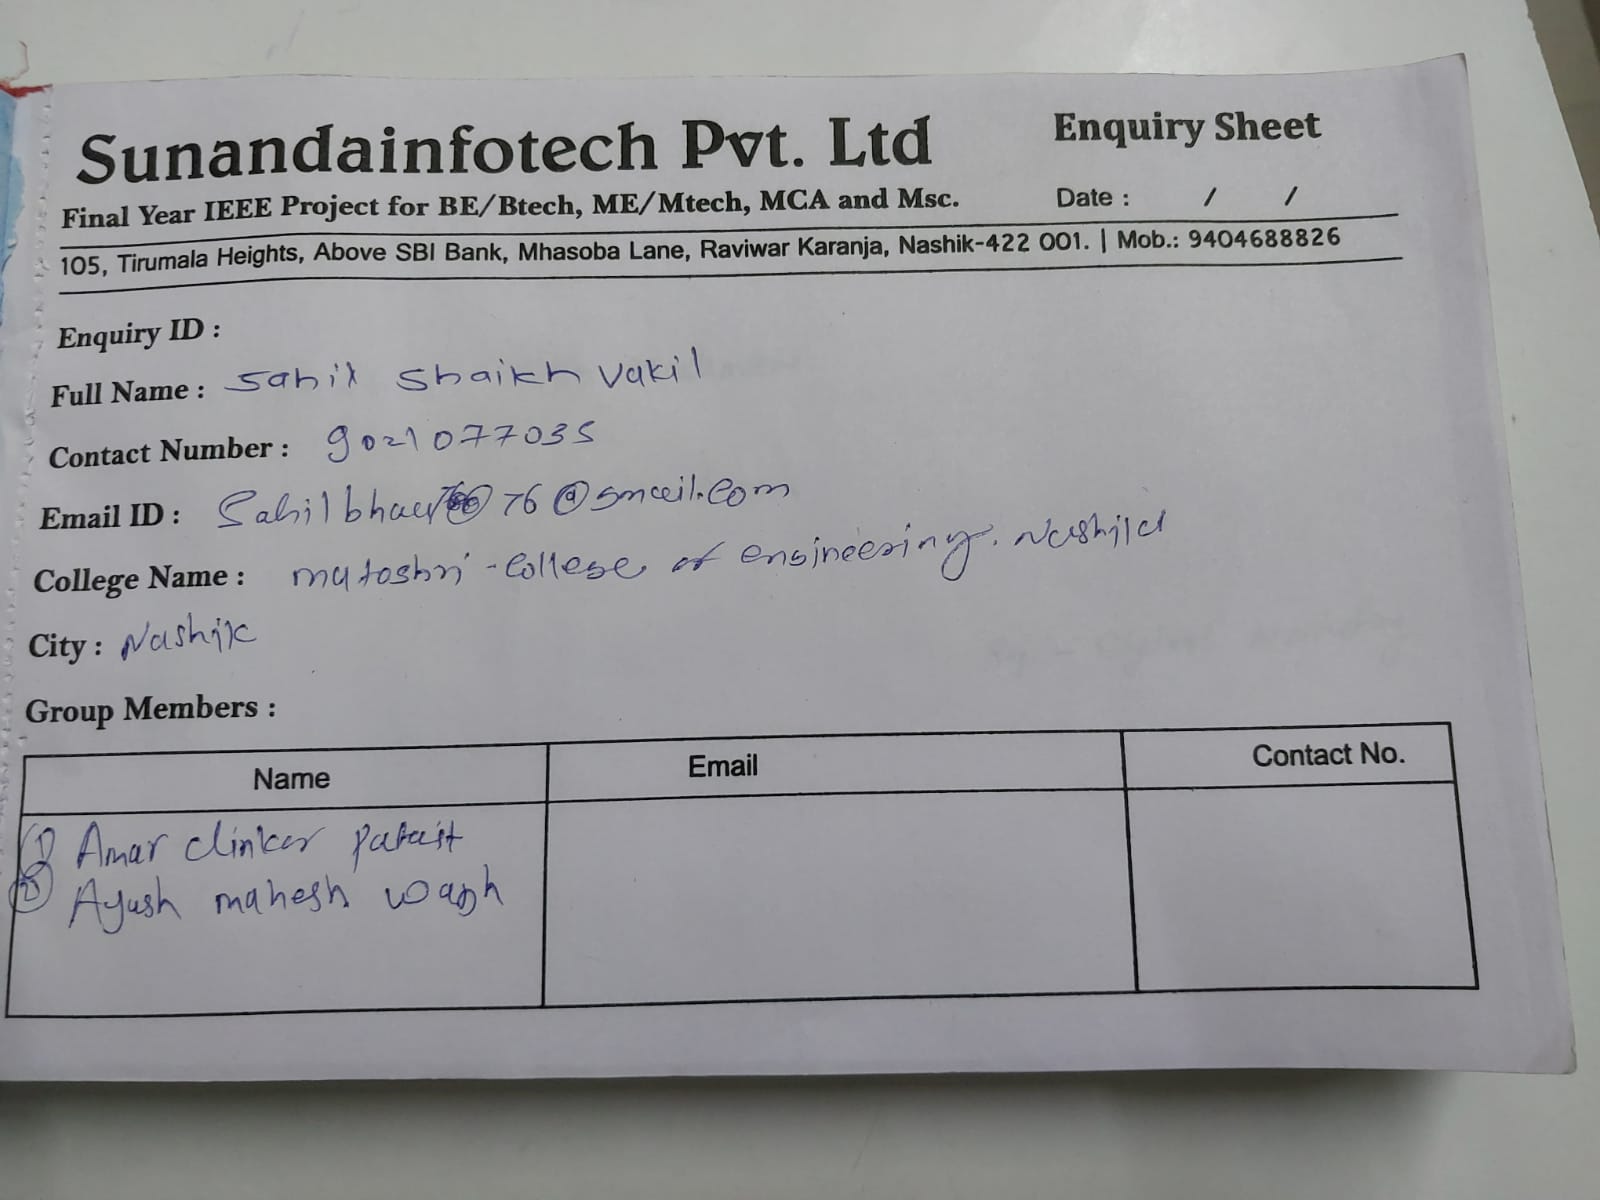 Sunandainfotech Pvt. Ltd
Enquiry Sheet
Final Year IEEE Project for BE/Btech, ME/Mtech, MCA and Msc.
Date : / /
105, Tirumala Heights, Above SBI Bank, Mhasoba Lane, Raviwar Karanja, Nashik-422 001. | Mob.: 9404688826
Enquiry ID :
Full Name : Sahil Shaikh Vakil
Contact Number : 9021077035
Email ID :
College Name : matoshri - College of engineering. Nashik
City : Nashik
Group Members :
Name Email Contact No.
1) Amar
2) Ayush mahesh wagh